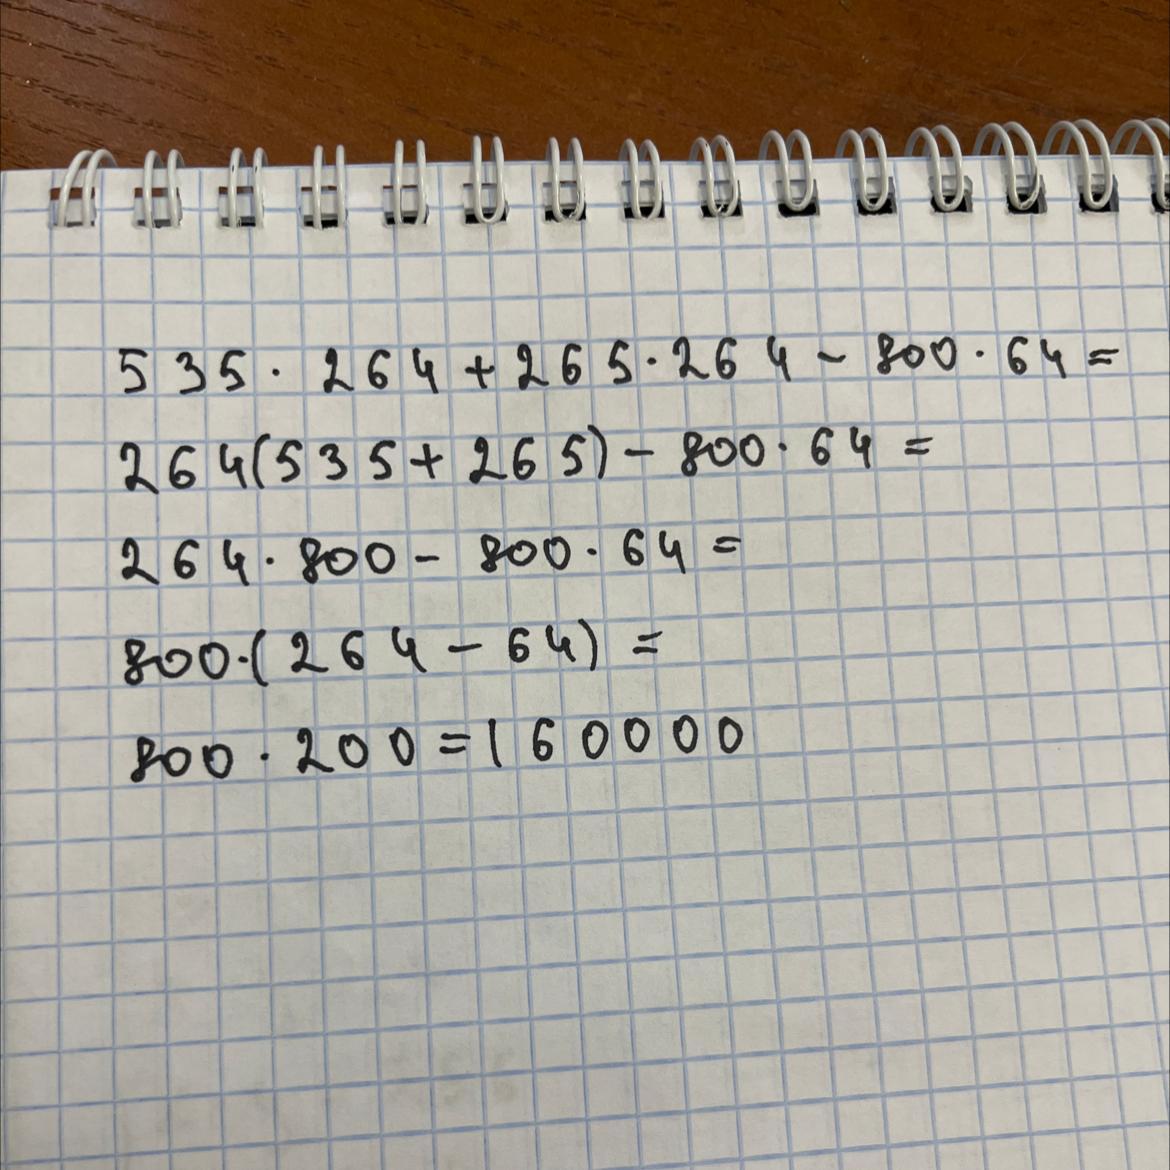 535 · 264 + 265 · 264 - 800 · 64 =
264(535 + 265) - 800 · 64 =
264 · 800 - 800 · 64 =
800 · (264 - 64) =
800 · 200 = 160000